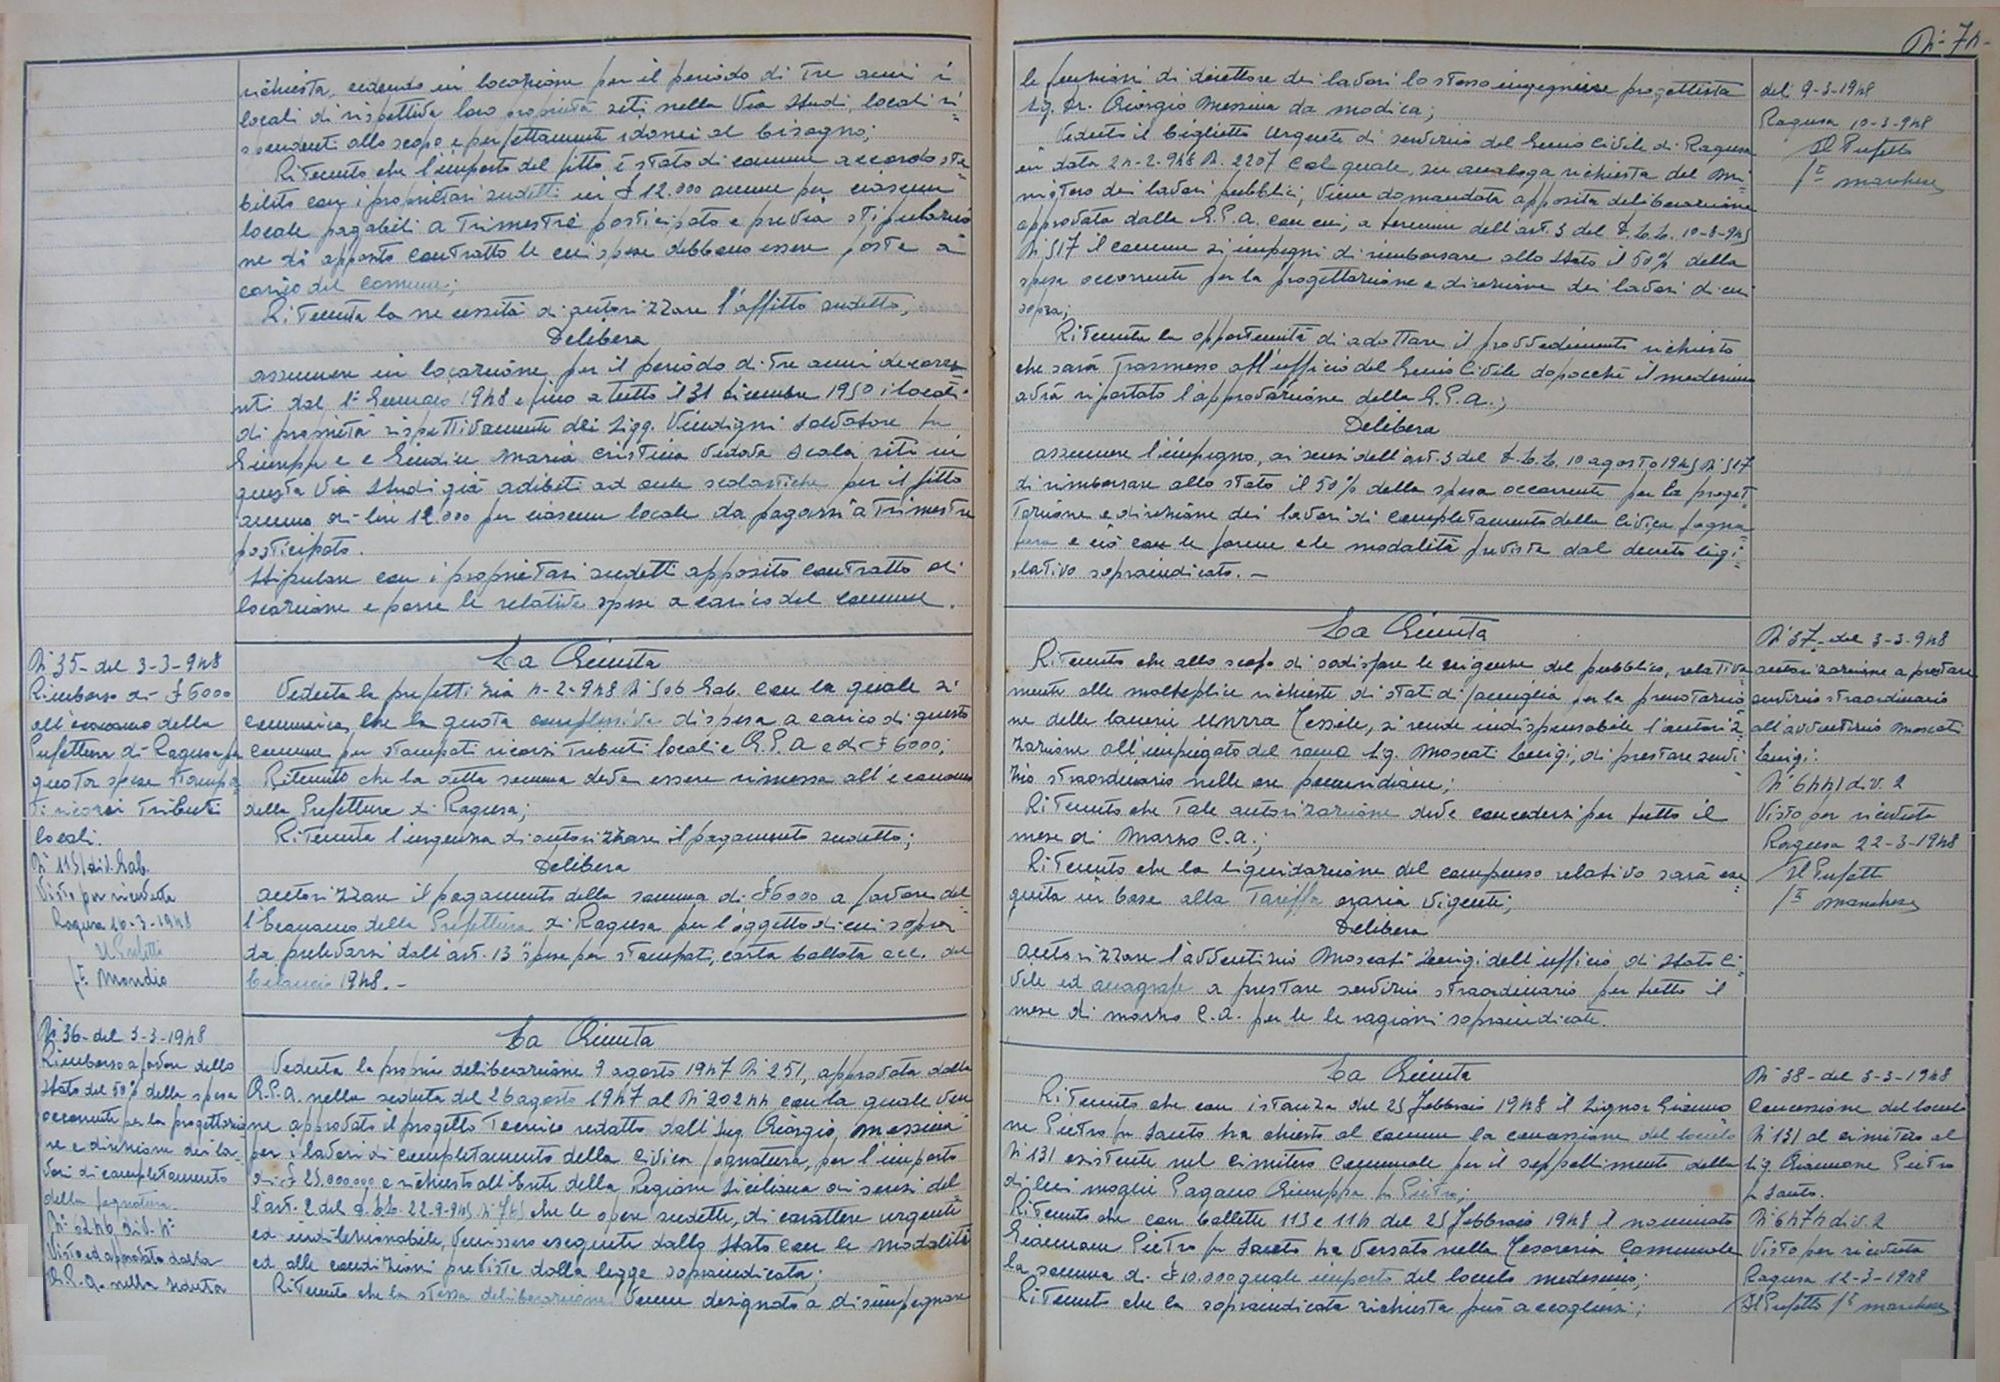 richiesta, cedendo in locazione per il periodo di tre anni i
locali di rispettiva loro proprietà siti nella Via Studi, locali ri=
spondenti allo scopo e perfettamente idonei al bisogno;
Ritenuto che l'importo del fitto è stato di comune accordo sta=
bilito con i proprietari sudetti in £ 12.000 annue per ciascun
locale pagabili a trimestre posticipato e previa stipulazio
ne di apposito contratto le cui spese debbono essere poste a
carico del Comune;
Ritenuta la necessità di autorizzare l'affitto sudetto;
Delibera
assumere in locazione per il periodo di tre anni decorren
ti dal 1° Gennaio 1948 e fino a tutto il 31 dicembre 1950 i locali
di proprietà rispettivamente dei Sigg. Vindigni Salvatore fu
Giuseppe e Giudice Maria Cristina Vedova Scala siti in
questa Via Studi già adibiti ad aule scolastiche per il fitto
annuo di lire 12.000 per ciascun locale da pagarsi a trimestre
posticipato.
Stipulare con i proprietari sudetti apposito contratto di
locazione e porre le relative spese a carico del comune.
N° 35 - del 3-3-948
Rimborso di £ 6000
all'economo della
Prefettura di Ragusa per
quota spese stampa
ti ricorsi Tributi
locali.
N° 1151 div. Gab.
Visto per ricevuta
Ragusa 10-3-1948
Il Prefetto
f° Mondio
La Giunta
Veduta la prefettizia 4-2-948 N° 506 Gab. con la quale si
comunica che la quota complessiva di spesa a carico di questo
comune per stampati ricorsi tributi locali e G.P.A. è di £ 6000;
Ritenuto che la detta somma deve essere rimessa all'economo
della Prefettura di Ragusa;
Ritenuta l'urgenza di autorizzare il pagamento sudetto;
Delibera
autorizzare il pagamento della somma di £ 6000 a favore del=
l'Economo della Prefettura di Ragusa per l'oggetto di cui sopra
da prelevarsi dall'art. 13 "spese per stampati, carta bollata ecc. del
bilancio 1948. -
N° 36 - del 3-3-1948
Rimborso a favore dello
Stato del 50% della spesa
occorrente per la progettazio
ne e direzione dei la=
vori di completamento
della fognatura.
N° 6246 Div. 4°
Visto ed approvato dalla
G.P.A. nella seduta
La Giunta
Veduta la propria deliberazione 9 agosto 1947 N° 251, approvata dalla
G.P.A. nella seduta del 26 agosto 1947 al N° 20244 con la quale ven
ne approvato il progetto Tecnico redatto dall'Ing. Giorgio Messina
per i lavori di completamento della Civica fognatura, per l'importo
di £ 25.000.000 e richiesto all'Ente della Regione Siciliana ai sensi del
l'art. 2 del D.L.L. 22-9-945 N° 745 che le opere sudette, di carattere urgente
ed indilazionabile, venissero eseguite dallo Stato con le modalità
ed alle condizioni previste dalla legge sopraindicata;
Ritenuto che la stessa deliberazione venne designato a disimpegnare
N° 74 -
le funzioni di direttore dei lavori lo stesso ingegniere progettista
Sig. Dr. Giorgio Messina da Modica;
Veduto il biglietto urgente di servizio del Genio Civile di Ragusa
in data 24-2-948 N. 2207 col quale, su analoga richiesta del Mi=
nistero dei lavori pubblici, viene domandata apposita deliberazione
approvata dalla G.P.A. con cui, a termini dell'art. 3 del D.L.L. 10-8-945
N° 517 il comune si impegni di rimborsare allo Stato il 50% della
spesa occorrente per la progettazione e direzione dei lavori di cui
sopra;
Ritenuta la opportunità di adottare il provvedimento richiesto
che sarà trasmesso all'ufficio del Genio Civile dopocchè il medesimo
avrà riportato l'approvazione della G.P.A.;
Delibera
assumere l'impegno, ai sensi dell'art. 3 del D.L.L. 10 agosto 1945 N° 517
di rimborsare allo stato il 50% della spesa occorrente per la proget
tazione e direzione dei lavori di completamento della Civica fogna
tura e ciò con le forme e le modalità previste dal decreto legi=
slativo sopraindicato. -
del 9-3-1948
Ragusa 10-3-948
Il Prefetto
f° Marchese
La Giunta
Ritenuto che allo scopo di sodisfare le esigenze del pubblico, relativa
mente alle molteplice richieste di stati di famiglia per la prenotazio
ne delle lanerie UNRRA Tessile, si rende indispensabile l'autoriz=
zazione all'impiegato del ramo Sig. Moscati Luigi, di prestare servi=
zio straordinario nelle ore pomeridiane;
Ritenuto che tale autorizzazione deve concedersi per tutto il
mese di Marzo C.A.;
Ritenuto che la liquidazione del compenso relativo sarà ese
guita in base alla Tariffa oraria vigente;
Delibera
autorizzare l'avventizio Moscati Luigi dell'ufficio di Stato Ci=
vile ed anagrafe a prestare servizio straordinario per tutto il
mese di marzo C.A. per le le ragioni sopraindicate.
N° 37 - del 3-3-948
autorizzazione a prestare
servizio straordinario
all'avventizio Moscati
Luigi:
N° 6441 div. 2
Visto per ricevuta
Ragusa 22-3-1948
Il Prefetto
f° Marchese
La Giunta
Ritenuto che con istanza del 25 febbraio 1948 il Signor Gianno
ne Pietro fu Santo ha chiesto al comune la concessione del loculo
N° 131 esistente nel Cimitero Comunale per il seppellimento della
di lui moglie Pagano Giuseppa fu Pietro;
Ritenuto che con bollette 113 e 114 del 25 febbraio 1948 il nominato
Giannone Pietro fu Santo ha versato nella Tesoreria Comunale
la somma di £ 10.000 quale importo del loculo medesimo;
Ritenuto che la sopraindicata richiesta può accogliersi;
N° 38 - del 3-3-1948
Concessione del loculo
N° 131 al cimitero al
Sig. Giannone Pietro
fu Santo.
N° 6474 div. 2
Visto per ricevuta
Ragusa 12-3-1948
Il Prefetto f° Marchese